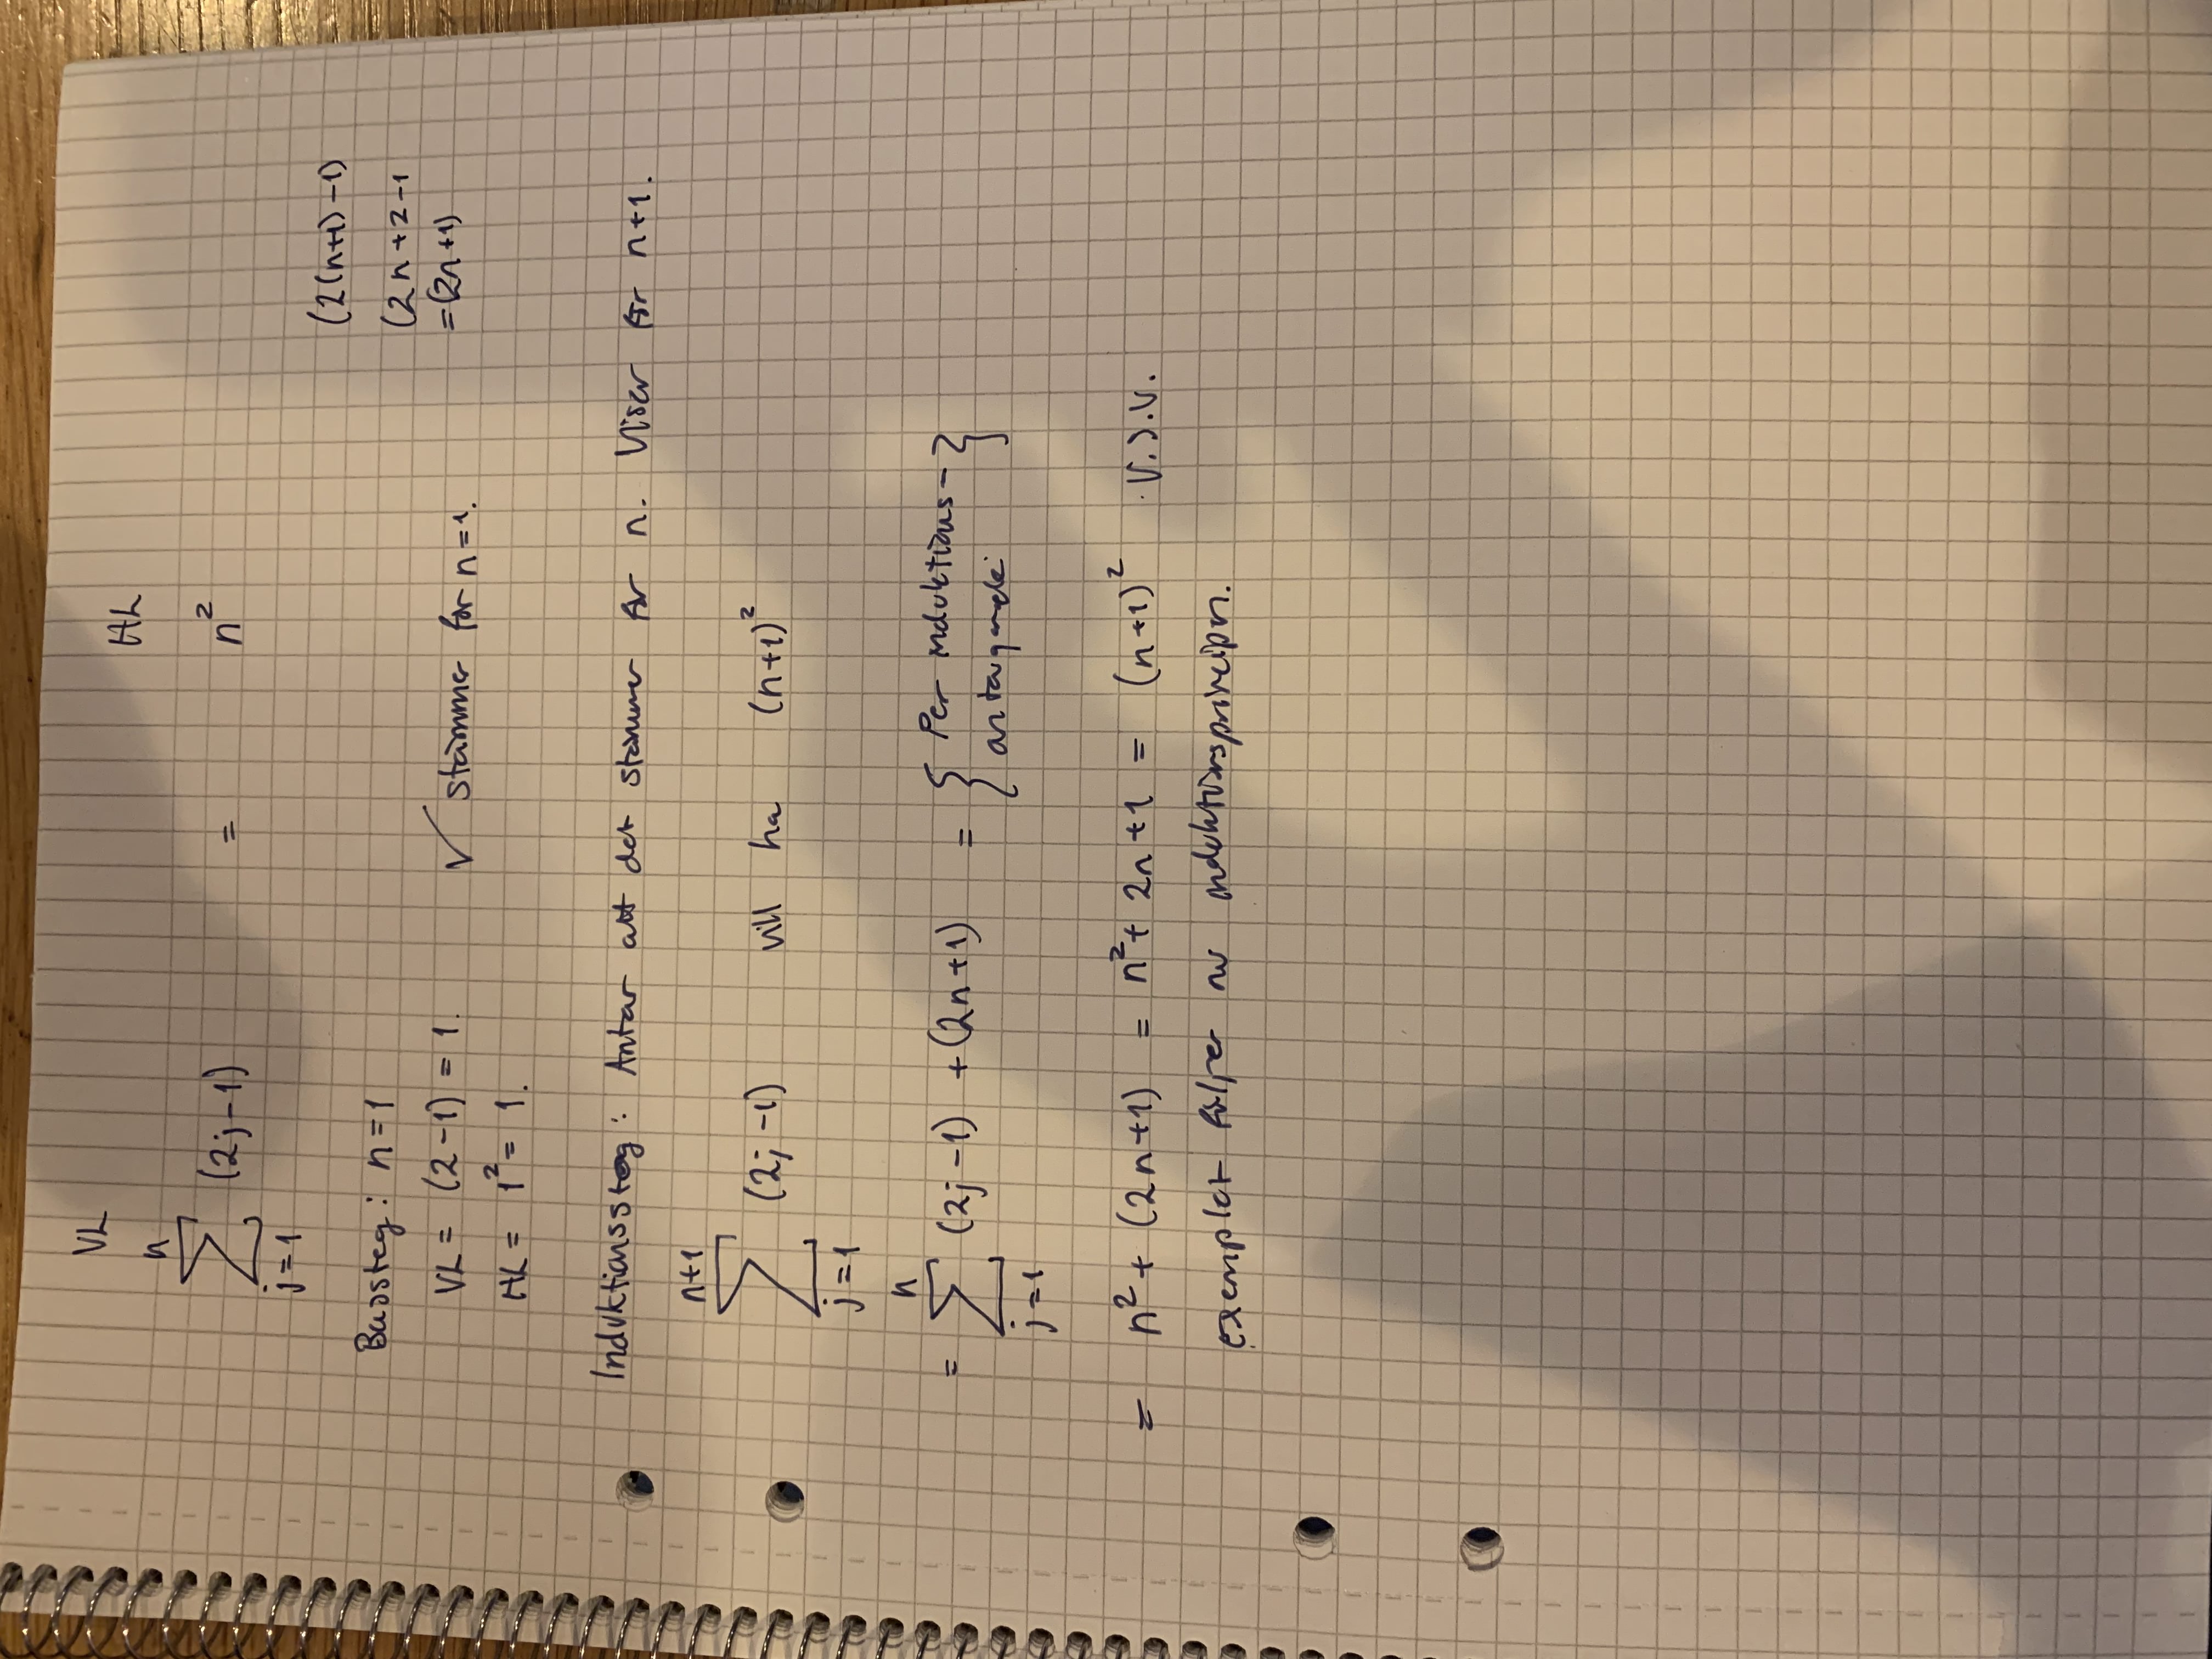 VL HL
n
∑ (2j-1) = n²
j=1
(2(n+1)-1)
(2n+2-1
=(2n+1)
Bassteg: n=1
VL = (2-1) = 1. ✓ stämmer för n=1.
HL = 1² = 1.
Induktionssteg: Antar att det stämmer för n. Visar för n+1.
n+1
∑ (2j-1) vill ha (n+1)²
j=1
n
= ∑ (2j-1) + (2n+1) = { Per induktions-
antagande }
j=1
= n² + (2n+1) = n² + 2n + 1 = (n+1)² V.S.V.
exemplet följer av induktionsprincipen.